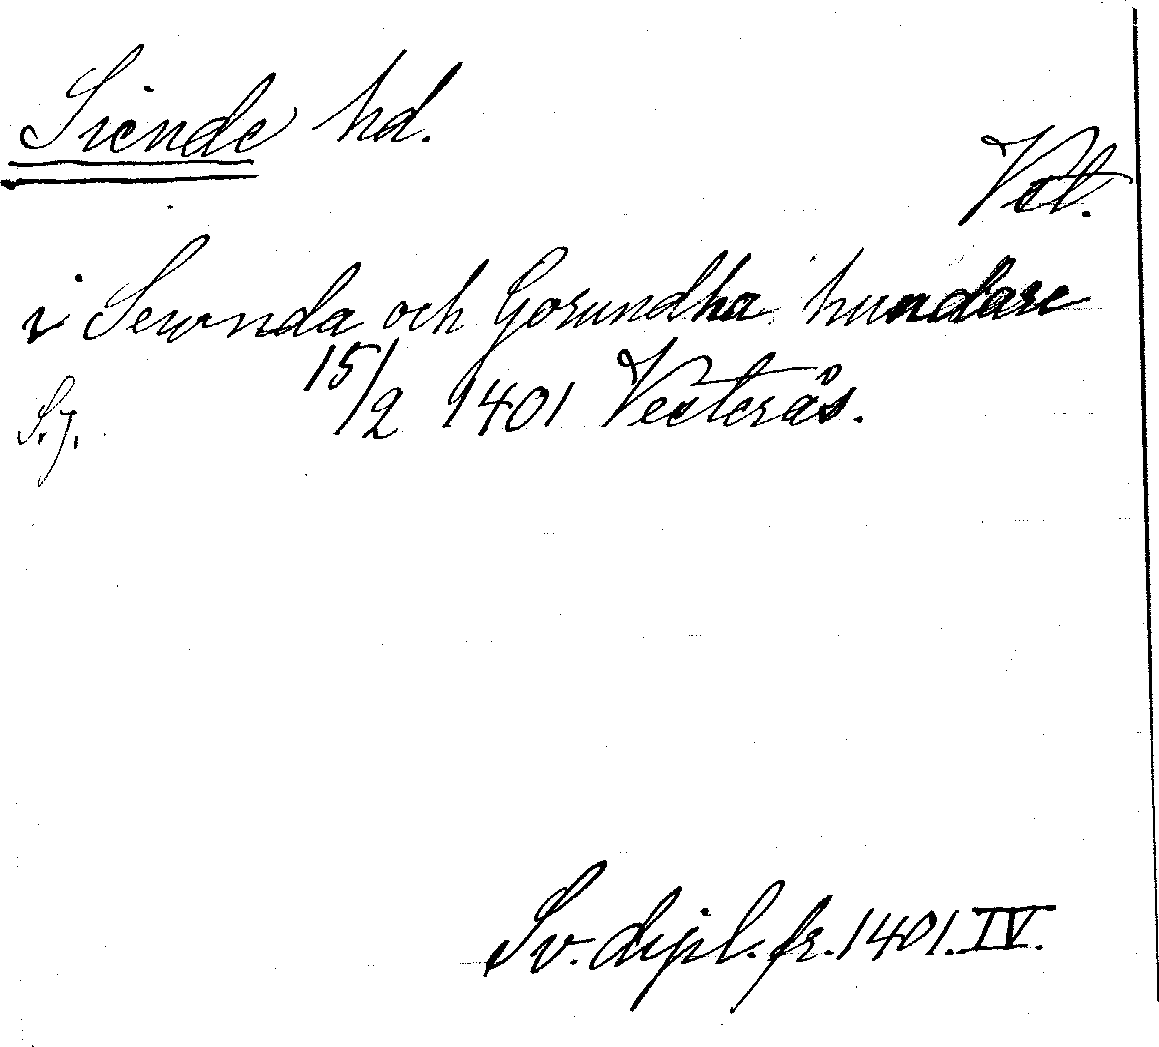 Siende hd.
Vstl.
i Serwnda och Gorundha hundare
S. 7. 15/2 1401 Vesterås.
Sv. dipl. fr. 1401. IV.